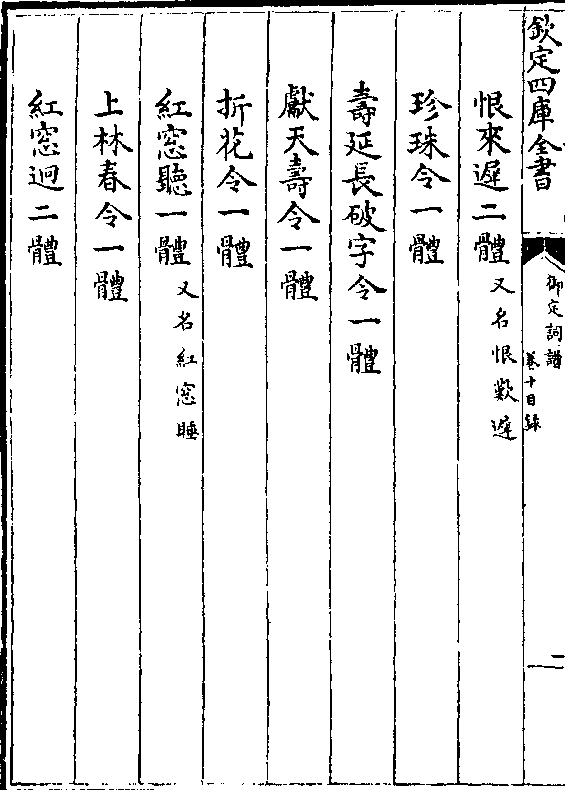 欽定四庫全書
御定詞譜
卷十目錄
二
恨來遲二體 又名恨歡遲
珍珠令一體
壽延長破字令一體
獻天壽令一體
折花令一體
紅窓聽一體 又名紅窓睡
上林春令一體
紅窓迥二體